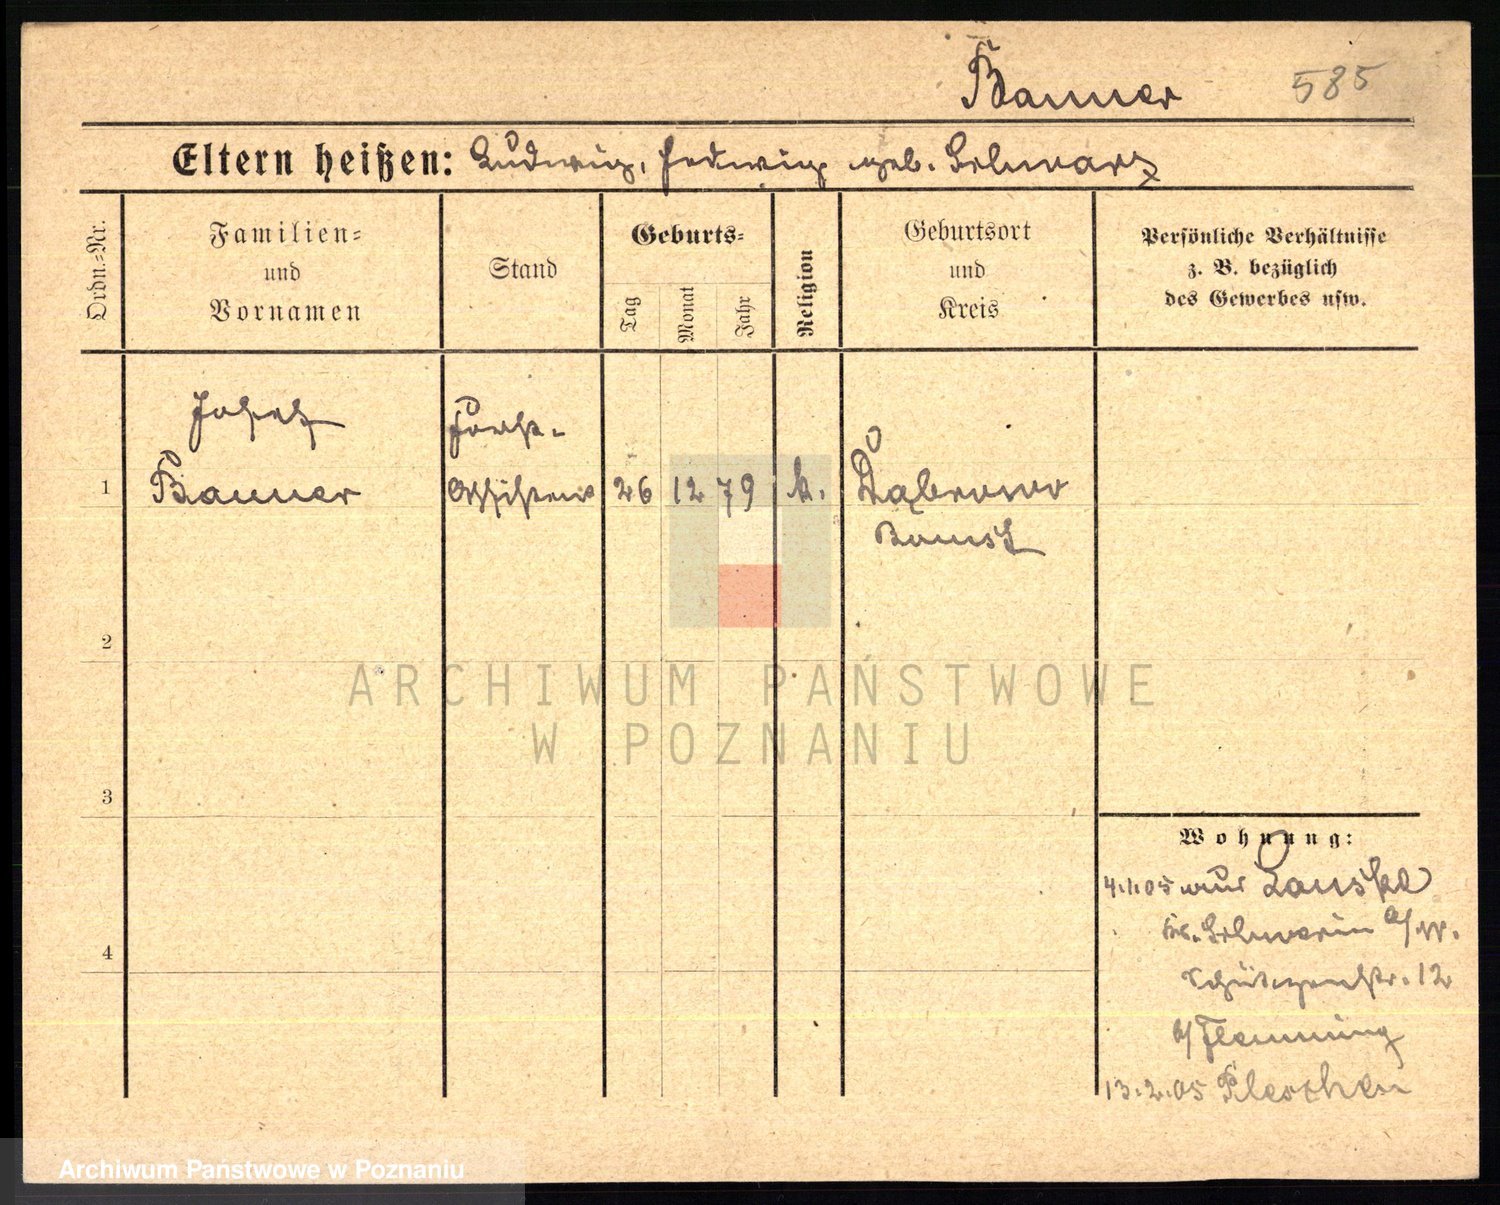 Banner 585
Eltern heißen: Ludwig, Hedwig geb. Schwarz
Ordn.-Nr.
Familien-
und
Vornamen
Stand
Geburts-
Tag
Monat
Jahr
Religion
Geburtsort
und
Kreis
Persönliche Verhältnisse
z. B. bezüglich
des Gewerbes usw.
Josef
Banner
Forst-
Assistent
1
26 12 79 k.
Dąbrowo
Bomst
2
3
4
Wohnung:
4.1.05 aus
Krs. Schwerin a/W.
Schützenstr. 12
b/ Flemming
13.2.05 Pleschen
ARCHIWUM PAŃSTWOWE
W POZNANIU
Archiwum Państwowe w Poznaniu